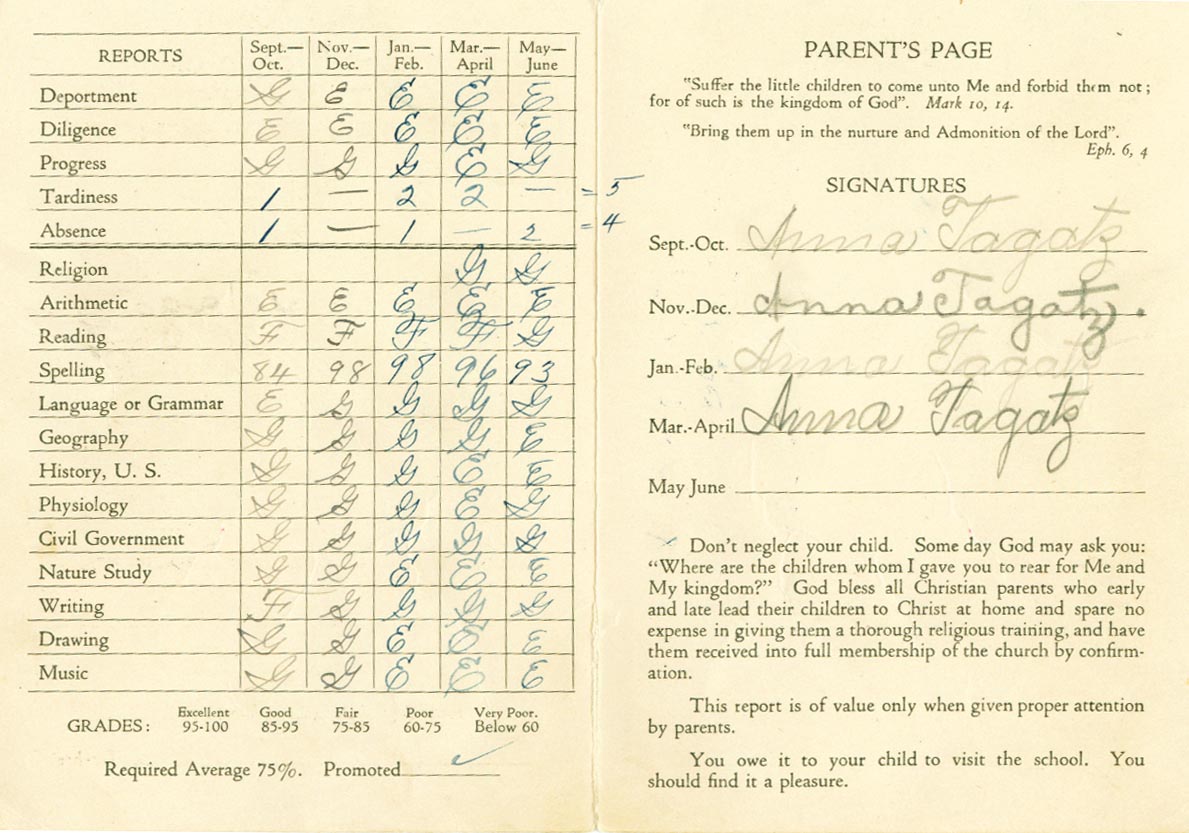 REPORTS Sept.— Oct. Nov.— Dec. Jan.— Feb. Mar.— April May— June
Deportment G E E E E
Diligence E E E E E
Progress G G G E G
Tardiness 1 — 2 2 — = 5
Absence 1 — 1 — 2 = 4
Religion G G
Arithmetic E E E E E
Reading F F F F G
Spelling 84 98 98 96 93
Language or Grammar E G G G G
Geography G G G G E
History, U. S. G G G E E
Physiology G G G E G
Civil Government G G G G G
Nature Study G G E E E
Writing F G G G G
Drawing G G E E E
Music G G E E E
GRADES: Excellent 95-100 Good 85-95 Fair 75-85 Poor 60-75 Very Poor. Below 60
Required Average 75%. Promoted ✓
PARENT'S PAGE
"Suffer the little children to come unto Me and forbid them not;
for of such is the kingdom of God". Mark 10, 14.
"Bring them up in the nurture and Admonition of the Lord".
Eph. 6, 4
SIGNATURES
Sept.-Oct. Anna Tagatz
Nov.-Dec. Anna Tagatz.
Jan.-Feb. Anna Tagatz
Mar.-April Anna Tagatz
May June
Don't neglect your child. Some day God may ask you:
“Where are the children whom I gave you to rear for Me and
My kingdom?” God bless all Christian parents who early
and late lead their children to Christ at home and spare no
expense in giving them a thorough religious training, and have
them received into full membership of the church by confirm-
ation.
This report is of value only when given proper attention
by parents.
You owe it to your child to visit the school. You
should find it a pleasure.